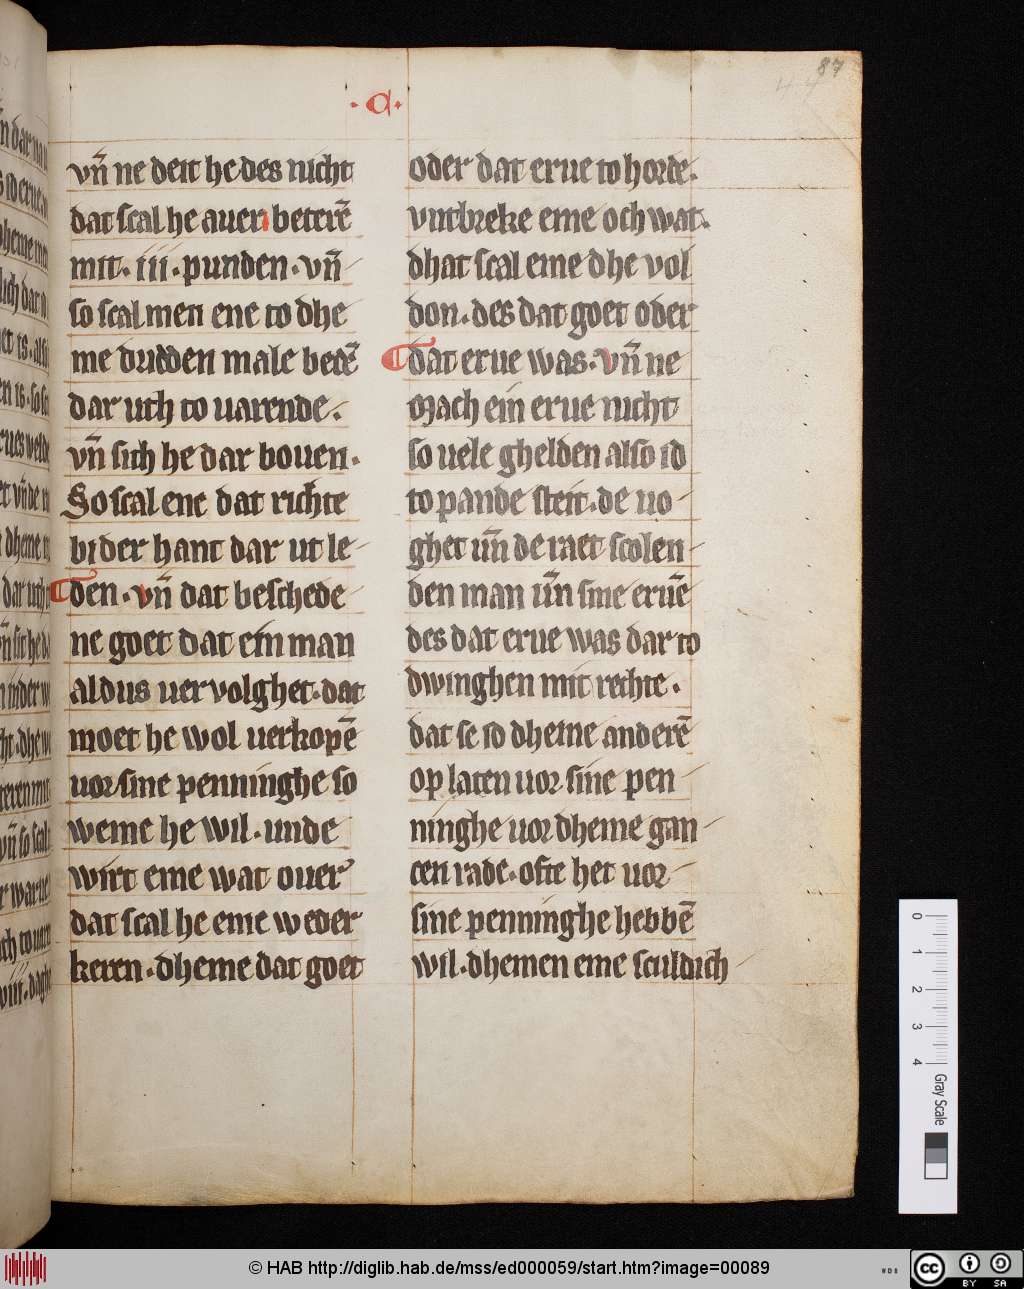 87
·C·
vn̄ ne deit he des nicht
dat scal he aueri beterē
mit· iii ·punden·vn̄
so scal men ene to dhe
me dridden male bedē
dar uth to uarende·
vn̄ sich he dar bouen·
So scal ene dat richte
bi der hant dar ut le
den·vn̄ dat beschede
ne goet dat ein man
aldus uervolghet·dat
moet he wol uerkopē
uor sine penninghe so
weme he wil·unde
wirt eme wat ouer
dat scal he eme weder
keren·dheme dat goet
oder dat erue to horde·
vntbreke eme och wat·
dhat scal eme dhe vol
don·des dat goet oder
dat erue was·vn̄ ne
Mach ein erue nicht
so uele ghelden also id
to pande steit·de uo
ghet un̄ de raet scolen
den man un̄ sine eruē
des dat erue was dar to
dwinghen mit rechte·
dat se id dheme anderē
op laten uor sine pen
ninghe uor dheme gan
cen rade·ofte het uor
sine penninghe hebbē
wil·dhemen eme sculdich
0 1 2 3 4
Gray Scale
© HAB http://diglib.hab.de/mss/ed000059/start.htm?image=00089
WDB
cc BY SA